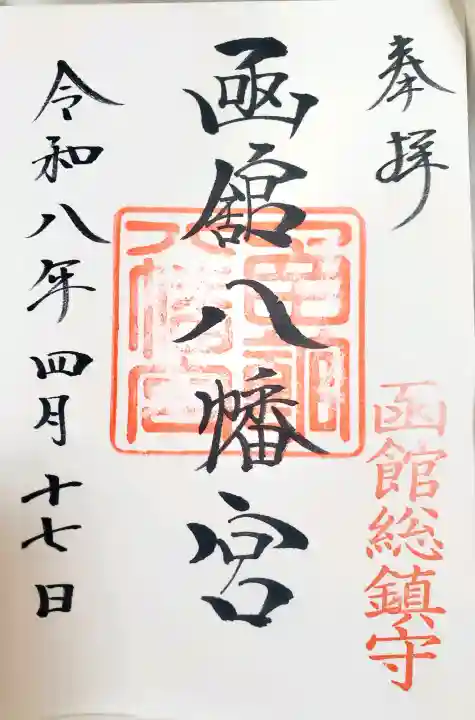 奉拝
函館総鎮守
函舘八幡宮
令和八年四月十七日